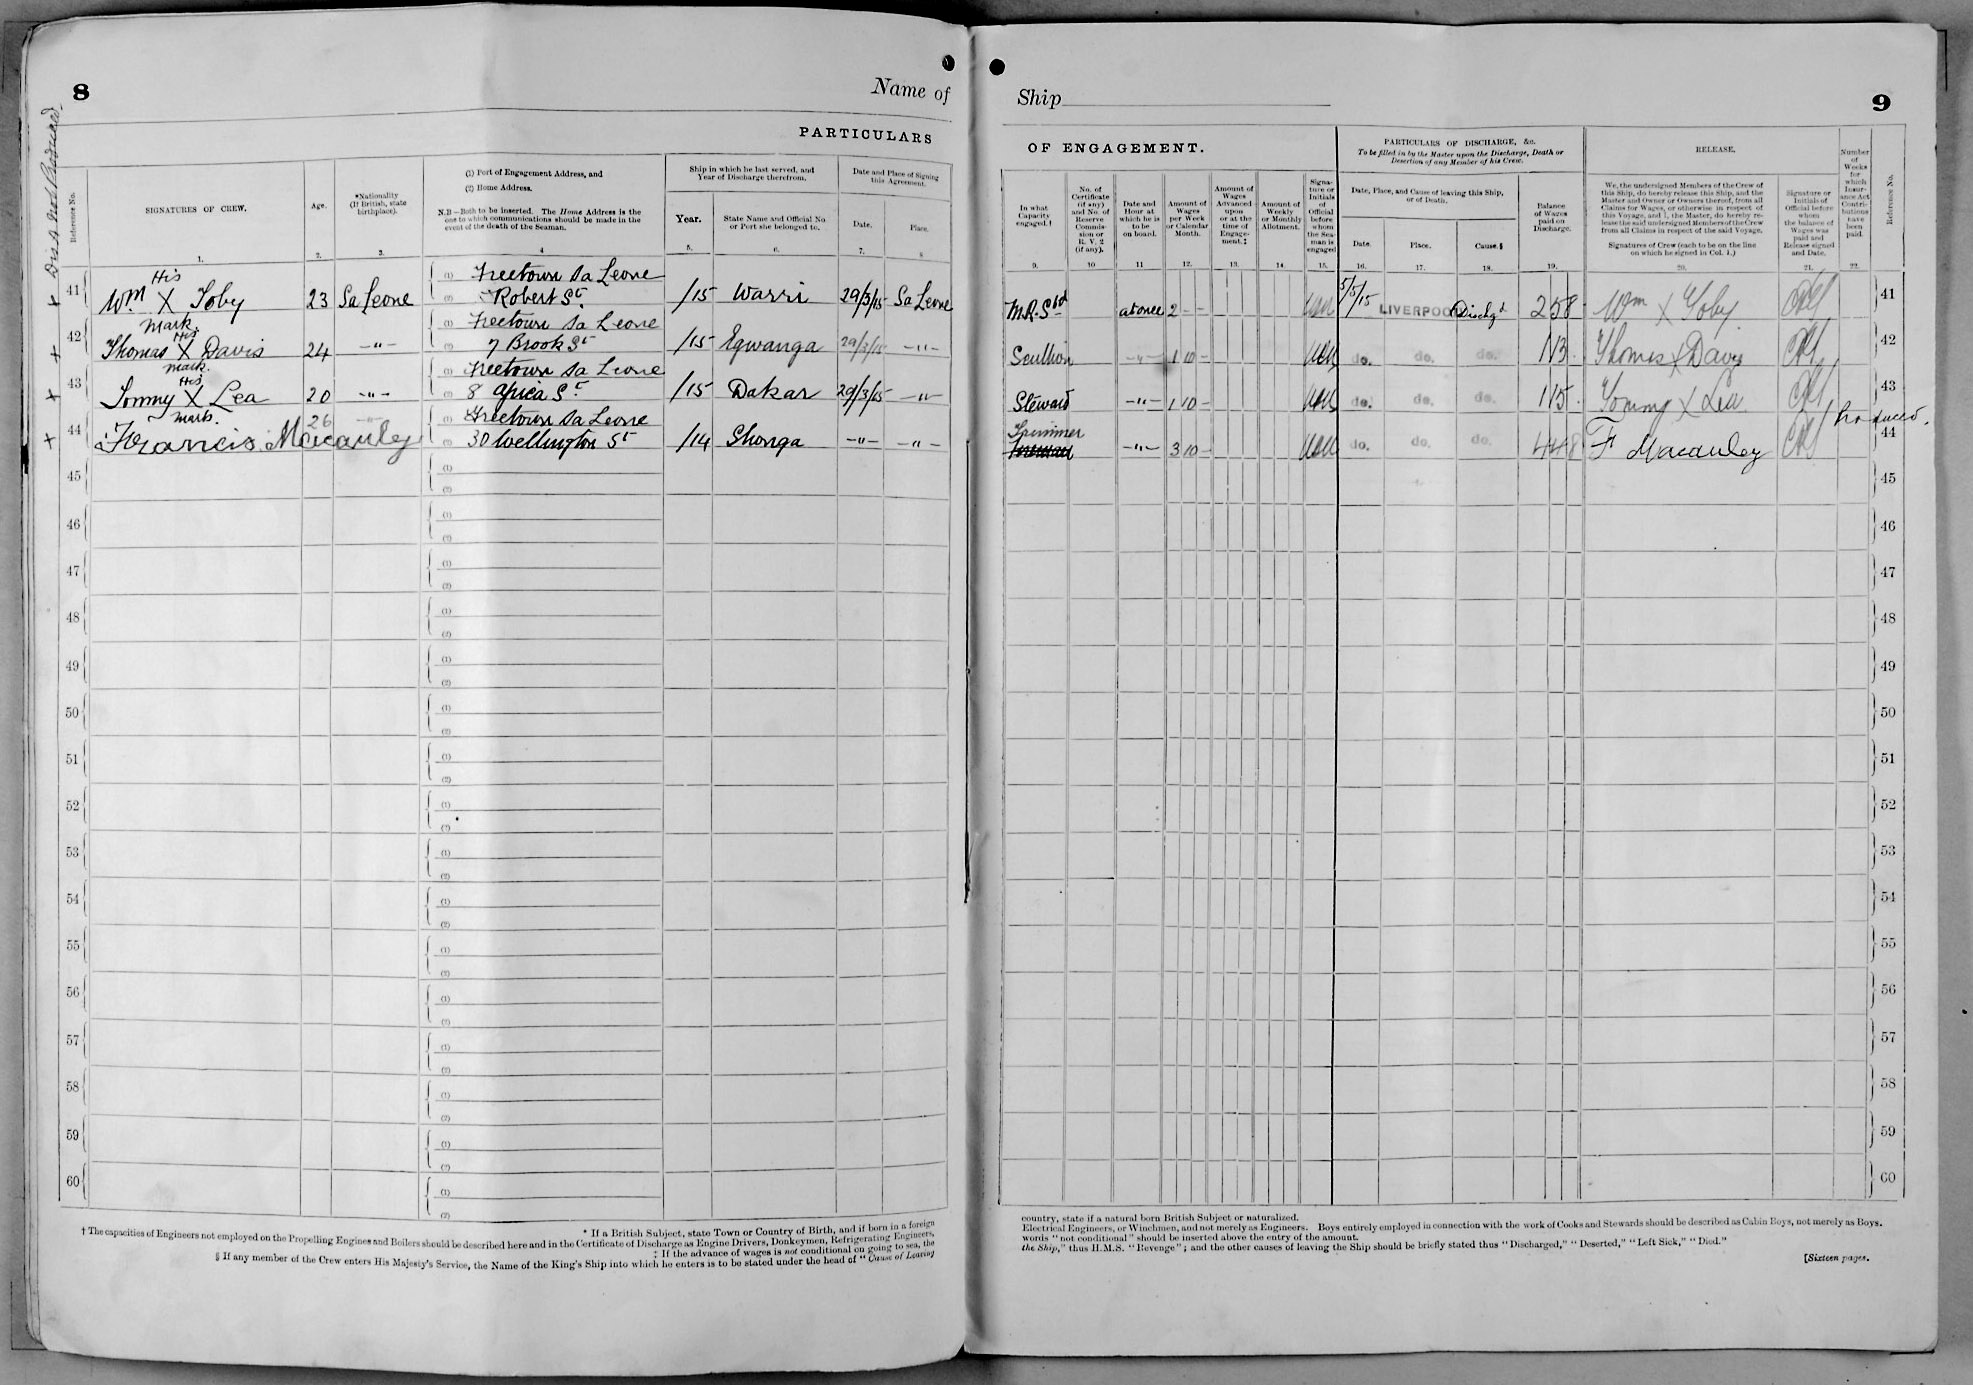 8
Name of
PARTICULARS
Reference No.
SIGNATURES OF CREW.
Age.
*Nationality
(If British, state
birthplace).
(1) Port of Engagement Address, and
(2) Home Address.
N.B—Both to be inserted. The Home Address is the
one to which communications should be made in the
event of the death of the Seaman.
Ship in which he last served, and
Year of Discharge therefrom.
Year.
State Name and Official No.
or Port she belonged to.
Date and Place of Signing
this Agreement.
Date.
Place.
1. 2. 3. 4 5. 6. 7. 8
41 Wm His X Mark. Toby 23 Sa Leone (1) Freetown Sa Leone
(2) Robert St. /15 Warri 29/3/15 Sa Leone
42 Thomas His X Mark. Davis 24 -"- (1) Freetown Sa Leone
(2) 7 Brook St /15 Egwanga 29/3/15 -"-
43 Tommy His X Mark. Lea 20 -"- (1) Freetown Sa Leone
(2) 8 Africa St /15 Dakar 29/3/15 -"-
44 Francis Macauley 26 -"- (1) Freetown Sa Leone
(2) 30 Wellington St /14 Shonga -"- -"-
45 (1)
(2)
46 (1)
(2)
47 (1)
(2)
48 (1)
(2)
49 (1)
(2)
50 (1)
(2)
51 (1)
(2)
52 (1)
(2)
53 (1)
(2)
54 (1)
(2)
55 (1)
(2)
56 (1)
(2)
57 (1)
(2)
58 (1)
(2)
59 (1)
(2)
60 (1)
(2)
* If a British Subject, state Town or Country of Birth, and if born in a foreign
† The capacities of Engineers not employed on the Propelling Engines and Boilers should be described here and in the Certificate of Discharge as Engine Drivers, Donkeymen, Refrigerating Engineers,
‡ If the advance of wages is not conditional on going to sea, the
§ If any member of the Crew enters His Majesty's Service, the Name of the King's Ship into which he enters is to be stated under the head of "Cause of Leaving
Ship
9
OF ENGAGEMENT.
PARTICULARS OF DISCHARGE, &c.
To be filled in by the Master upon the Discharge, Death or
Desertion of any Member of his Crew.
RELEASE.
In what
Capacity
engaged.†
No. of
Certificate
(if any)
and No. of
Reserve
Commis-
sion or
R. V. 2
(if any).
Date and
Hour at
which he is
to be
on board.
Amount of
Wages
per Week
or Calendar
Month.
Amount of
Wages
Advanced
upon
or at the
time of
Engage-
ment.‡
Amount of
Weekly
or Monthly
Allotment.
Signa-
ture or
Initials
of
Official
before
whom
the Sea-
man is
engaged
Date, Place, and Cause of leaving this Ship,
or of Death.
Date.
Place.
Cause.§
Balance
of Wages
paid on
Discharge.
We, the undersigned Members of the Crew of
this Ship, do hereby release this Ship, and the
Master and Owner or Owners thereof, from all
Claims for Wages, or otherwise in respect of
this Voyage, and I, the Master, do hereby re-
lease the said undersigned Members of the Crew
from all Claims in respect of the said Voyage.
Signatures of Crew (each to be on the line
on which he signed in Col. 1.)
Signature or
Initials of
Official before
whom
the balance of
Wages was
paid and
Release signed
and Date.
Number
of
Weeks
for
which
Insur-
ance Act
Contri-
butions
have
been
paid.
Reference No.
9. 10 11 12. 13. 14. 15. 16. 17. 18. 19. 20. 21. 22.
M.R. Std at once 2 - - 5/5/15 LIVERPOOL Dischgd 2 5 8 Wm X Toby 41
Scullion -"- 1 10 - do. do. do. Thomas X Davis 42
Steward -"- 1 10 - do. do. do. Tommy X Lea 43
Trimmer
Fireman -"- 3 10 - do. do. do. 4 4 8 F Macauley 44
Produced.
45
46
47
48
49
50
51
52
53
54
55
56
57
58
59
60
country, state if a natural born British Subject or naturalized.
Electrical Engineers, or Winchmen, and not merely as Engineers. Boys entirely employed in connection with the work of Cooks and Stewards should be described as Cabin Boys, not merely as Boys.
words "not conditional" should be inserted above the entry of the amount.
the Ship," thus H.M.S. "Revenge"; and the other causes of leaving the Ship should be briefly stated thus "Discharged," "Deserted," "Left Sick," "Died."
[Sixteen pages.